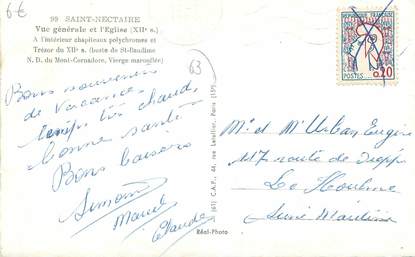 6€
99 SAINT-NECTAIRE
Vue générale et l'Eglise (XIIe s.)
A l'intérieur chapiteaux polychromes et
Trésor du XIIe s. (buste de St-Baudime
N. D. du Mont-Cornadore, Vierge marouflée)
63
Bons souvenirs
de Vacances
temps très chaud,
bonne santé
Bons baisers
Simone
Marcel
Claude
Réal-Photo
[61] C.A.P. 44, rue Letellier, Paris (15e)
REPUBLIQUE FRANÇAISE
POSTES 0,20
Mr et Mme Urbain Eugène
117 route de Dieppe
Le Houlme
Seine Maritime